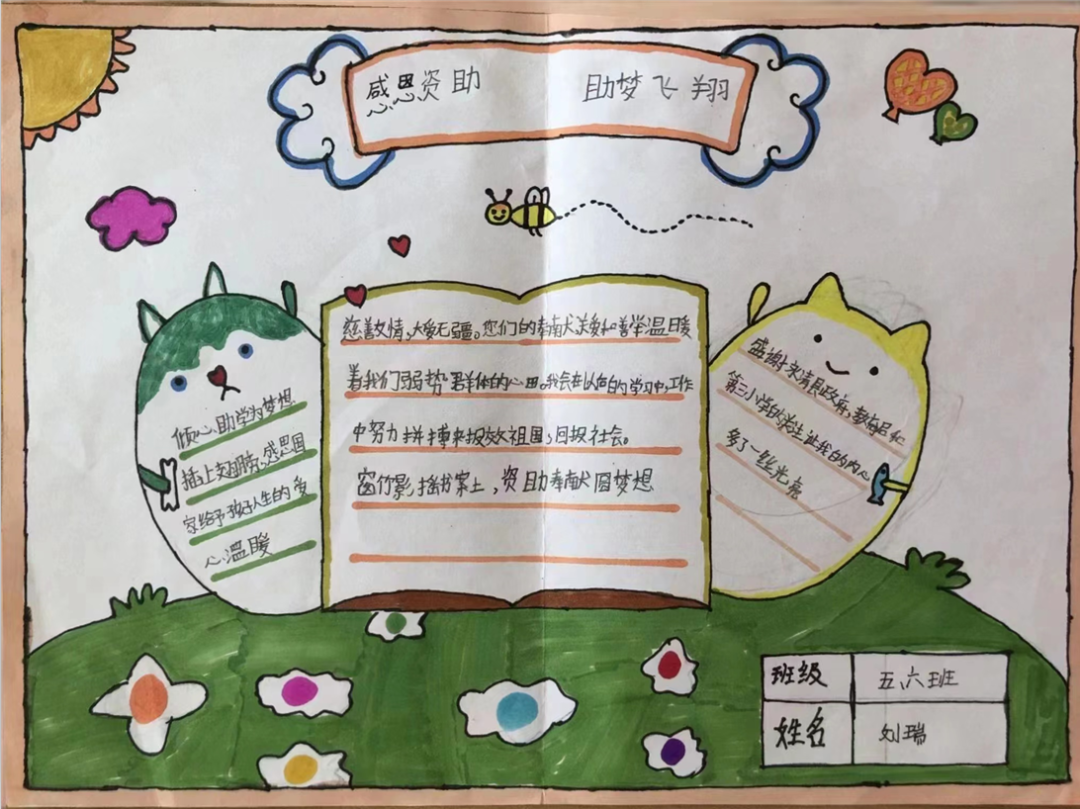 感恩资助 助梦飞翔
倾心助学为梦想
插上翅膀,感恩国
家给予孩子人生的
心温暖
慈善友情,大爱无疆。您们的奉献关爱和善举温暖
着我们弱势群体的心田。我会在以后的学习中,工作
中努力拼搏来报效祖国,回报社会。
窗竹影摇书案上,资助奉献圆梦想
感谢 清县政府,教育局和
第三小学的 生让我的内心
多了一丝光亮
班级 五、六班
姓名 刘瑞